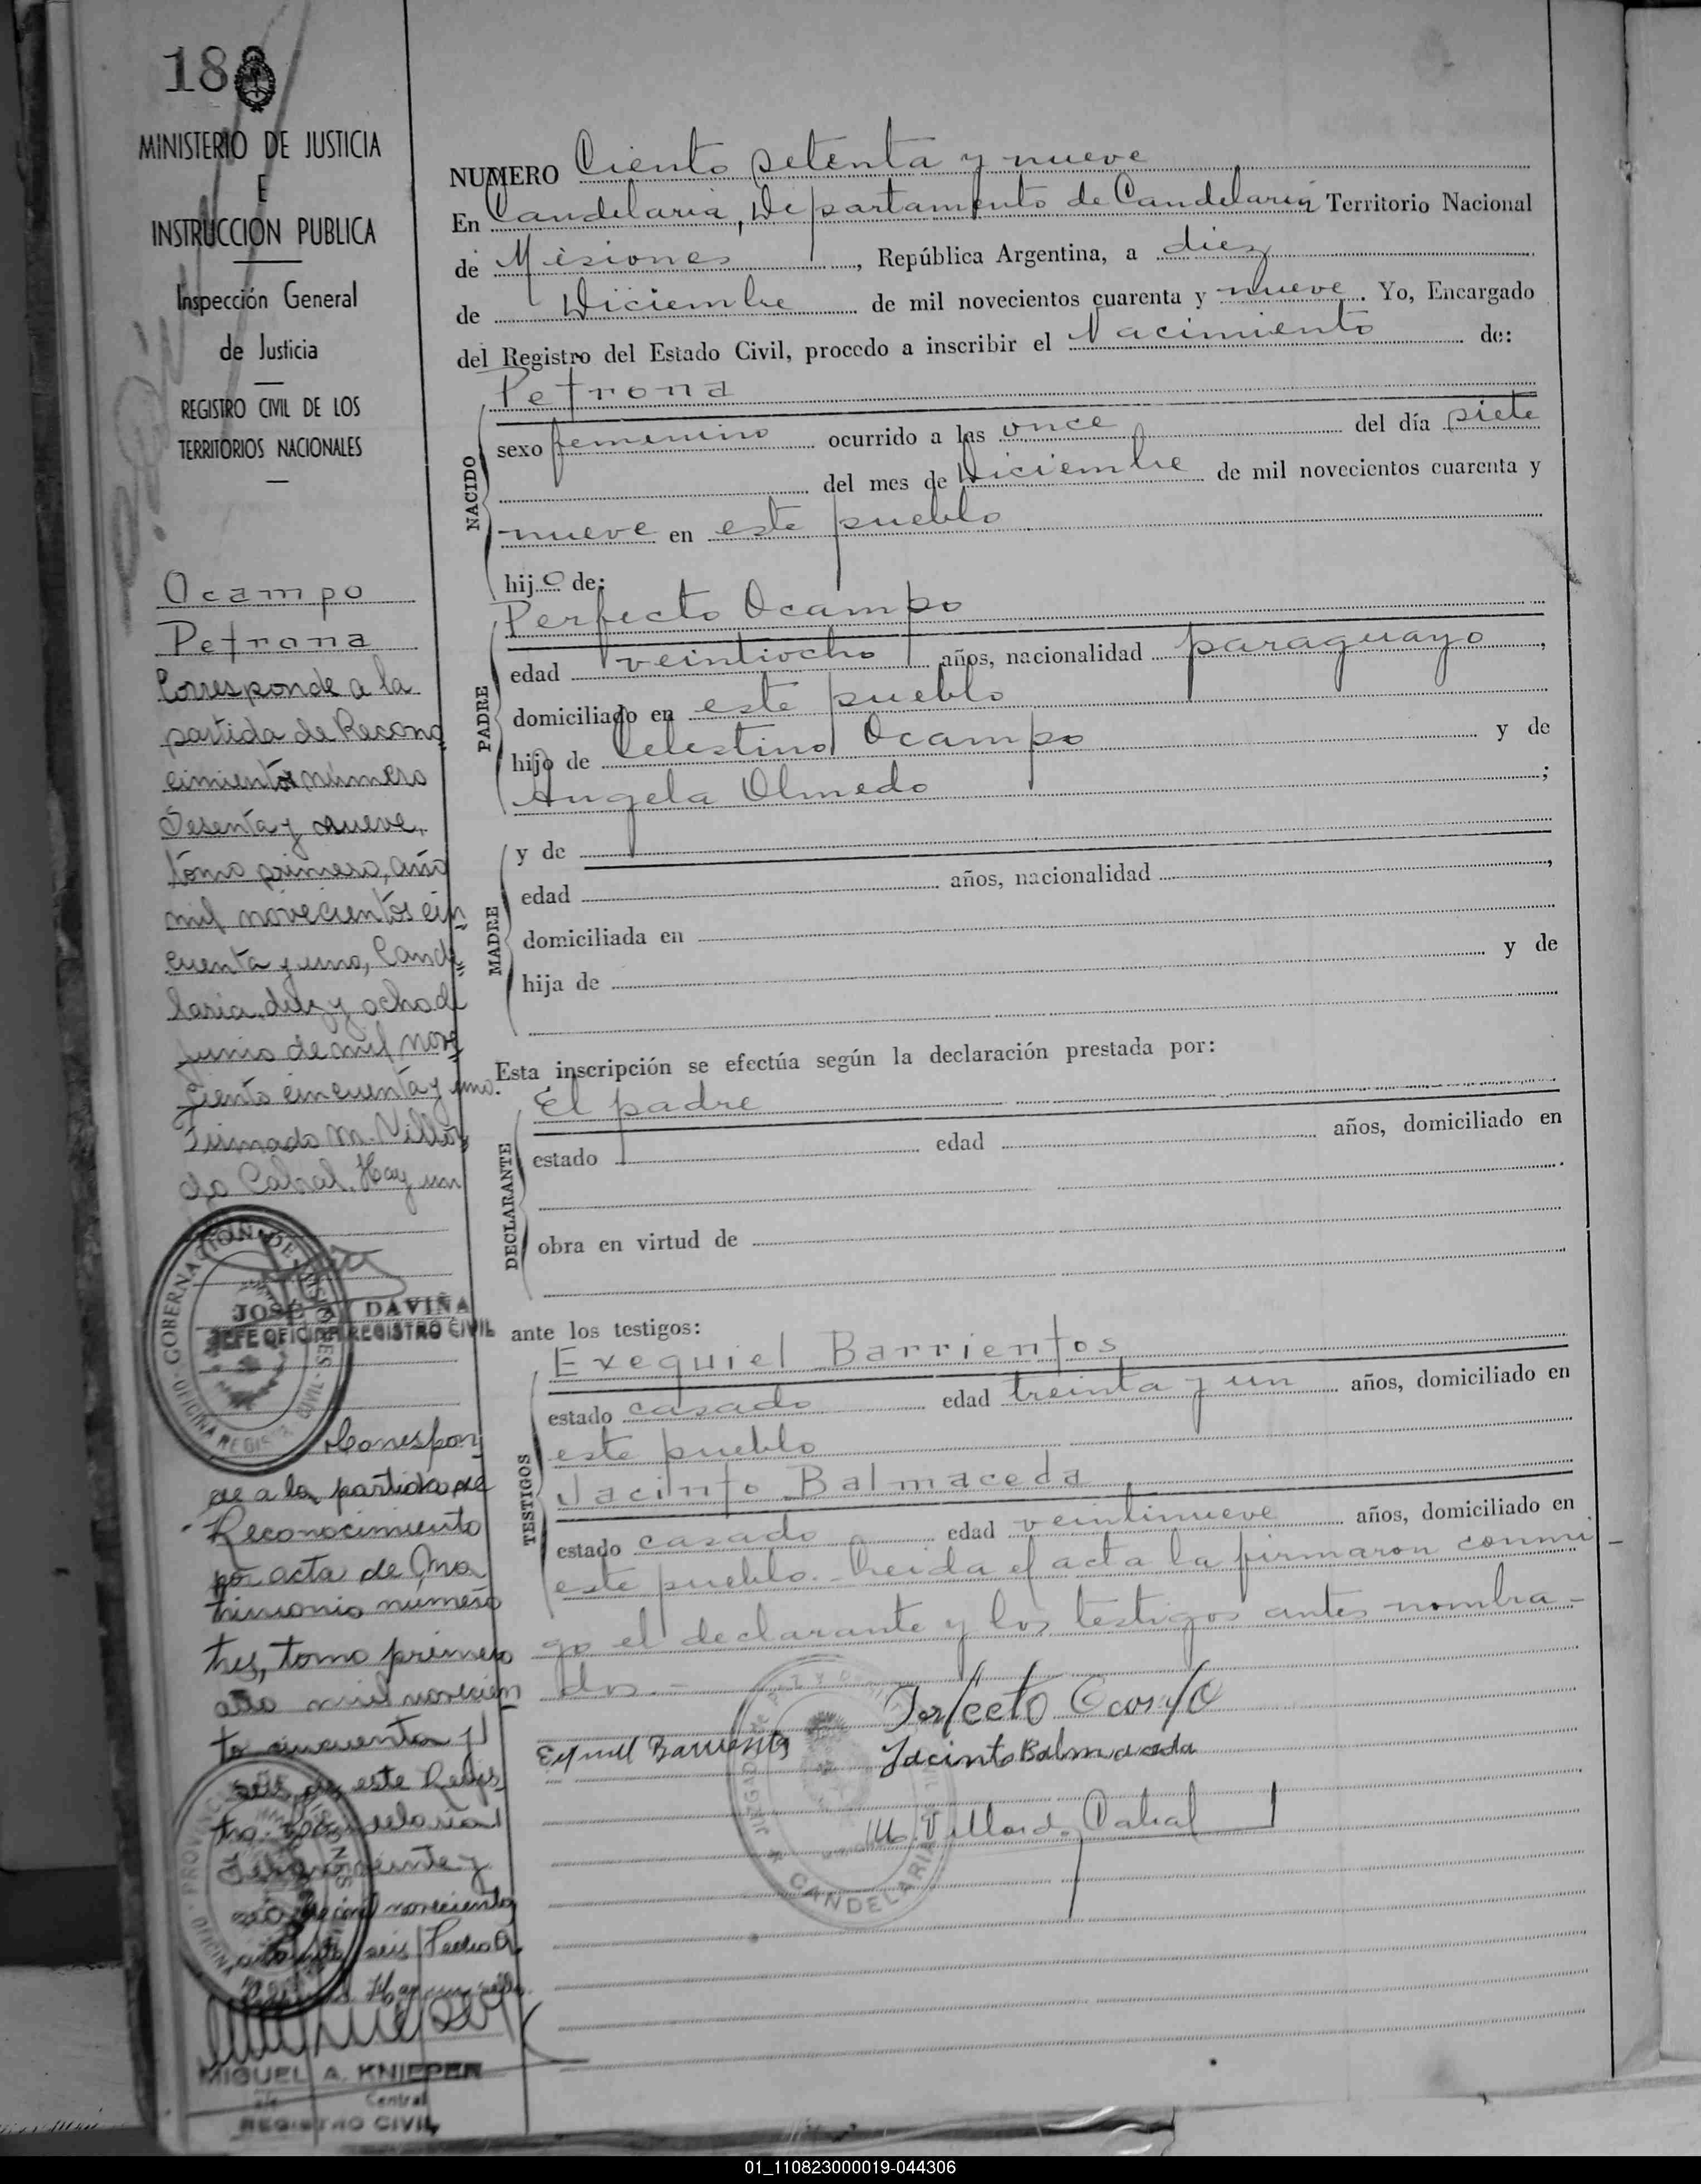 18
MINISTERIO DE JUSTICIA
E
INSTRUCCION PUBLICA
Inspección General
de Justicia
REGISTRO CIVIL DE LOS
TERRITORIOS NACIONALES
Ocampo
Petrona
Corresponde a la
partida de Recono
cimiento número
Sesenta y nueve,
tomo primero, año
mil novecientos cin
cuenta y uno, Cande
laria, diez y ocho de
Junio de mil nove
ciento cincuenta y uno.
Firmado M. Villor
do Cabral. Hay un
GOBERNACION DE MISIONES
OFICINA REGISTRO CIVIL
JOSÉ A. DAVIÑA
JEFE OFICINA REGISTRO CIVIL
Correspon
de a la partida de
Reconocimiento
por acta de Ma
trimonio número
tres, tomo primero
año mil novecien
to cincuenta y
seis, de este Regis
tro. Candelaria
veinte y
mil novecientos
cincuenta seis Pedro A.
Hay un sello.
MIGUEL A. KNIEPER
Jefe Central
REGISTRO CIVIL
NUMERO Ciento setenta y nueve
En Candelaria, Departamento de Candelaria Territorio Nacional
de Misiones, República Argentina, a diez
de Diciembre de mil novecientos cuarenta y nueve. Yo, Encargado
del Registro del Estado Civil, procedo a inscribir el Nacimiento de:
NACIDO
Petrona
sexo femenino ocurrido a las once del día siete
del mes de Diciembre de mil novecientos cuarenta y
nueve en este pueblo
hijo de:
PADRE
Perfecto Ocampo
edad veintiocho años, nacionalidad paraguayo,
domiciliado en este pueblo
hijo de Celestino Ocampo y de
Angela Olmedo;
MADRE
y de
edad años, nacionalidad,
domiciliada en
hija de y de
Esta inscripción se efectúa según la declaración prestada por:
DECLARANTE
El padre
estado edad años, domiciliado en
obra en virtud de
ante los testigos:
TESTIGOS
Exequiel Barrientos
estado casado edad treinta y un años, domiciliado en
este pueblo
Jacinto Balmaceda
estado casado edad veintinueve años, domiciliado en
este pueblo.- Leida el acta la firmaron conmi-
go el declarante y los testigos antes nombra-
dos.-
Perfecto Ocampo
Exequiel Barrientos
Jacinto Balmaceda
M. Villordo Cabral
JUZGADO DE PAZ Y
CANDELARIA
01_110823000019-044306